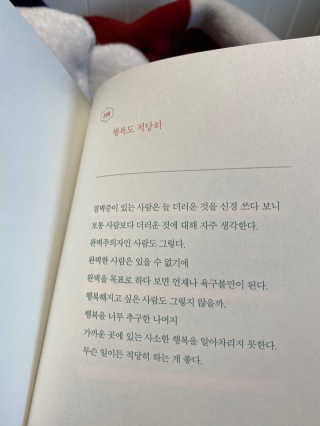 행복도 적당히
결벽증이 있는 사람은 늘 더러운 것을 신경 쓰다 보니
보통 사람보다 더러운 것에 대해 자주 생각한다.
완벽주의자인 사람도 그렇다.
완벽한 사람은 있을 수 없기에
완벽을 목표로 하다 보면 언제나 욕구불만이 된다.
행복해지고 싶은 사람도 그렇지 않을까.
행복을 너무 추구한 나머지
가까운 곳에 있는 사소한 행복을 알아차리지 못한다.
무슨 일이든 적당히 하는 게 좋다.